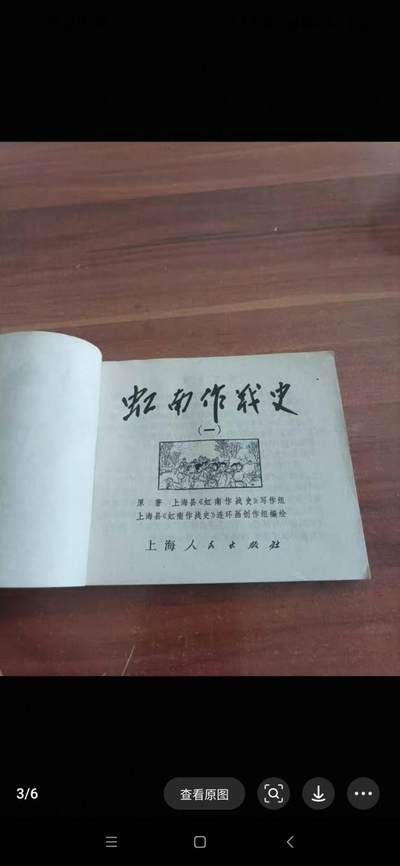 虹南作战史
(一)
原 著 上海县《虹南作战史》写作组
上海县《虹南作战史》连环画创作组编绘
上海人民出版社
3/6
查看原图